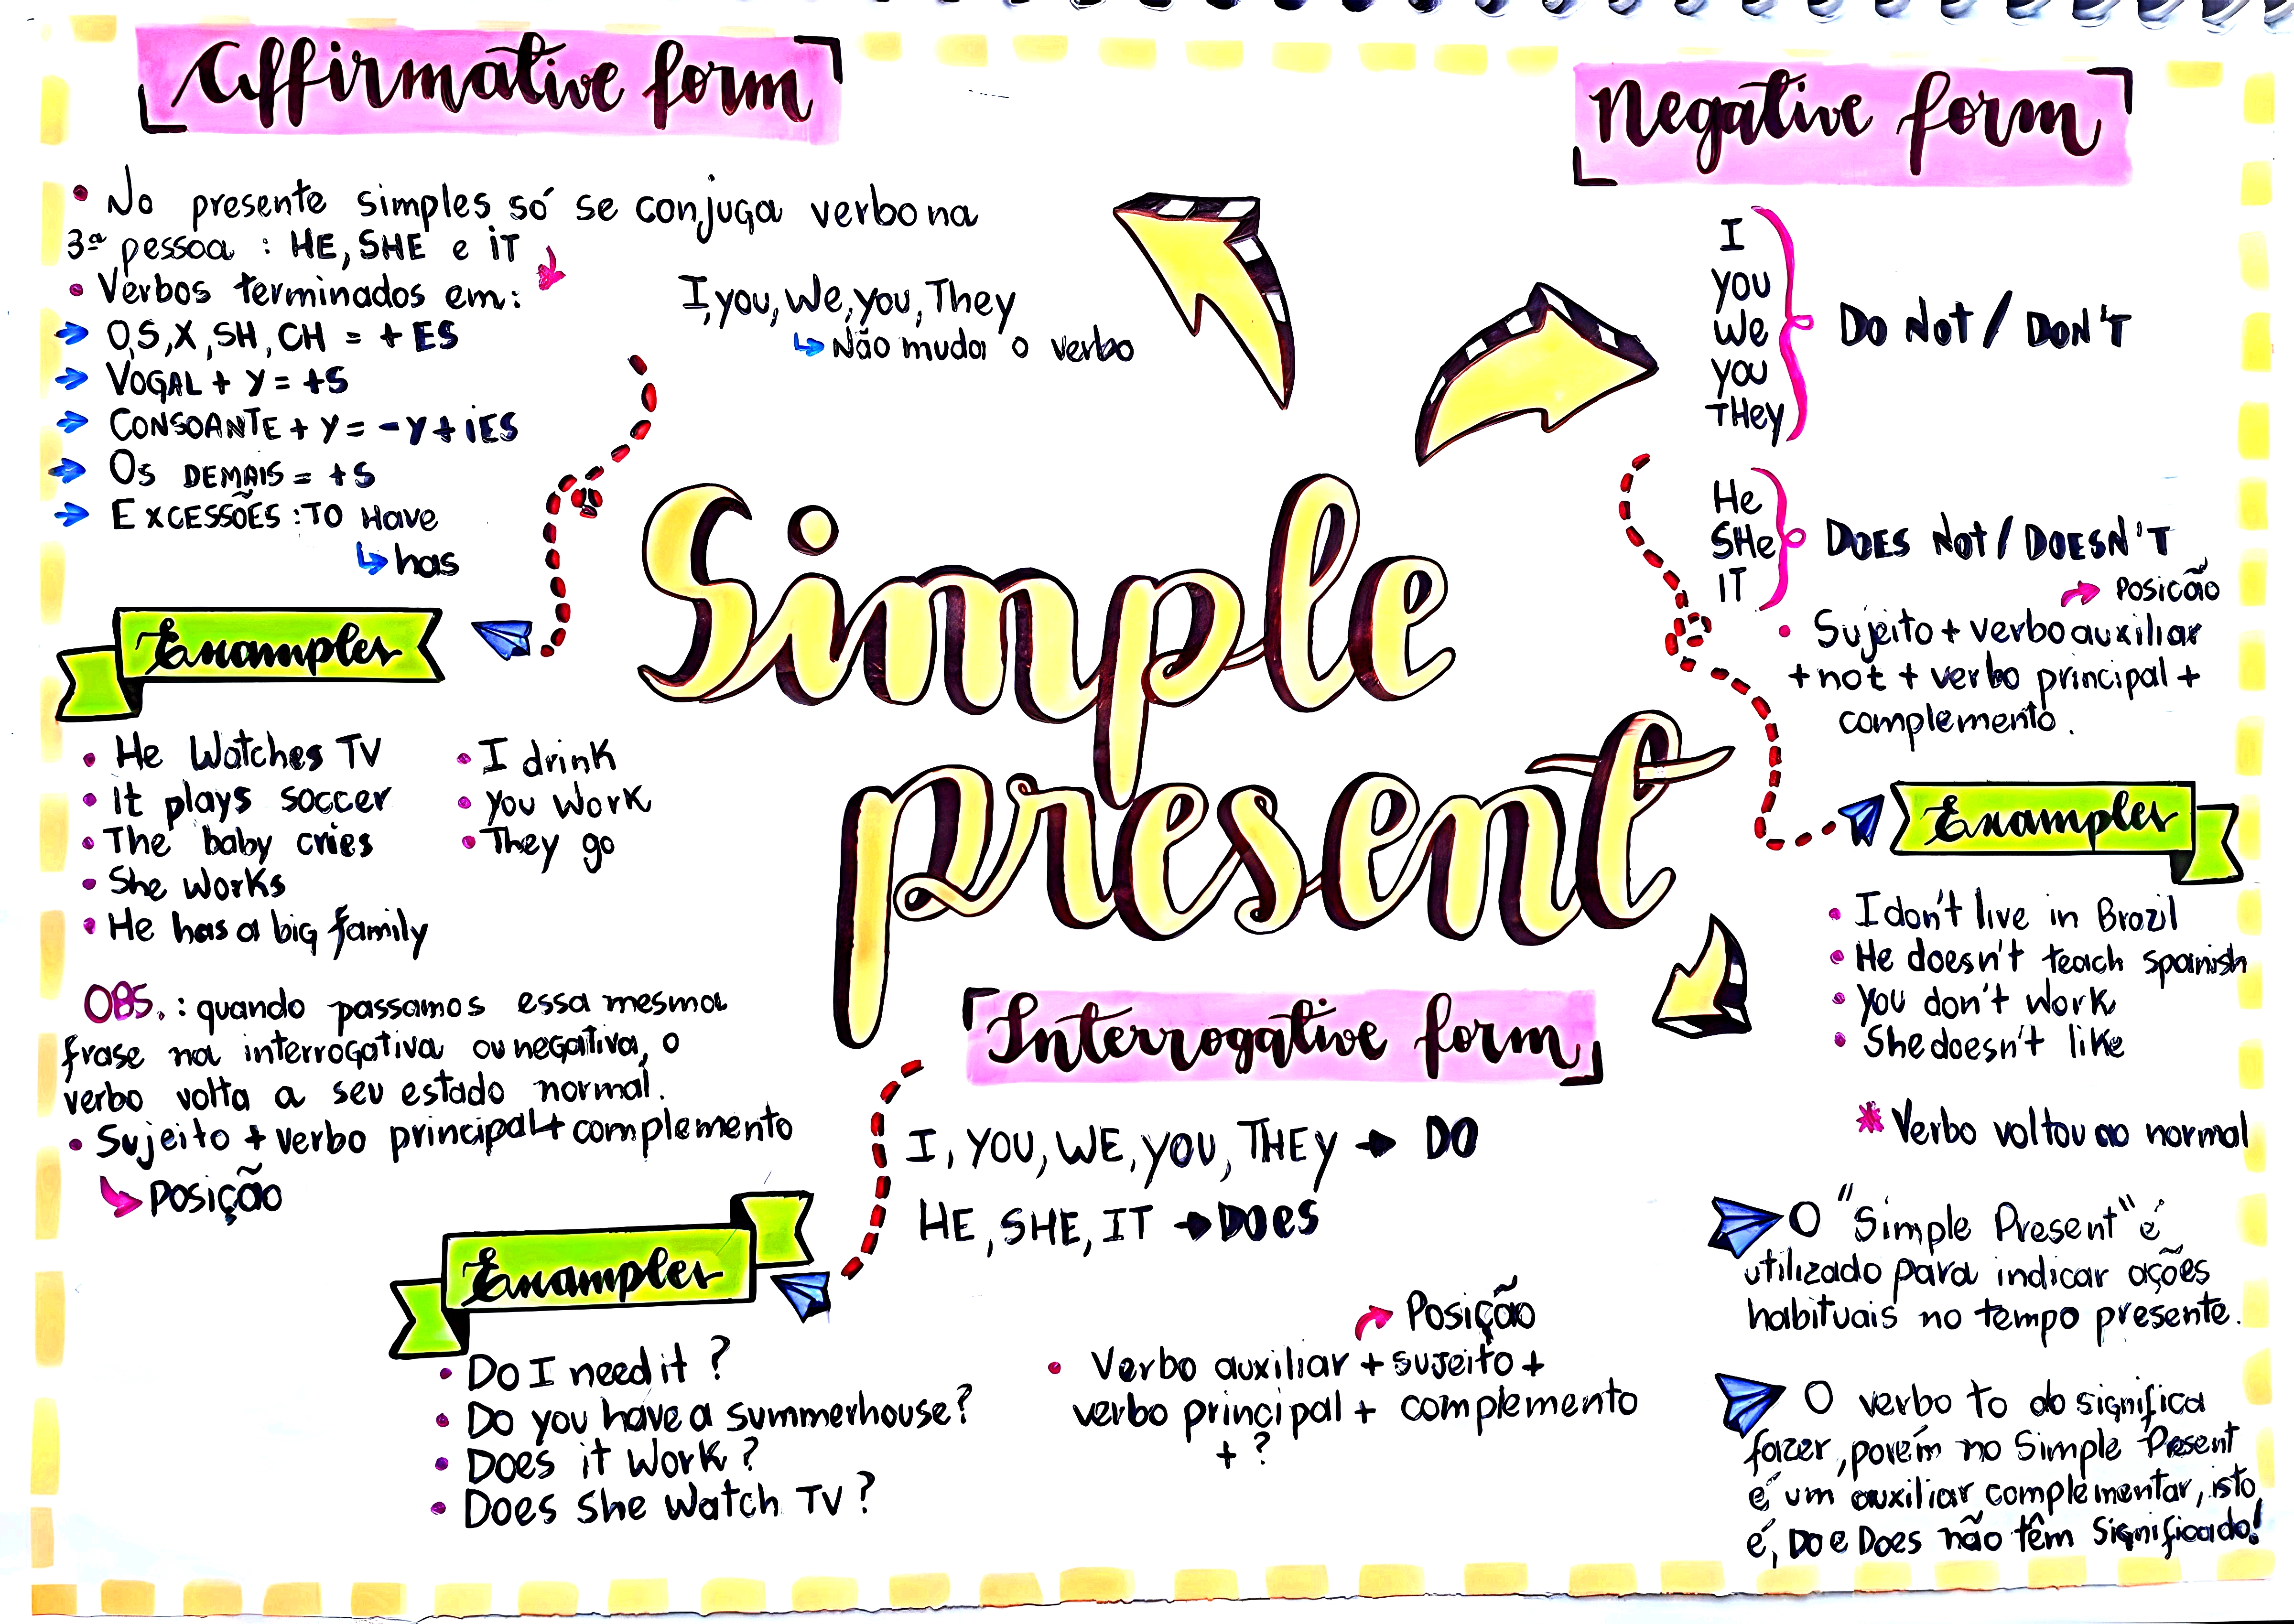 Affirmative form
• No presente simples só se conjuga verbo na
3ª pessoa : HE, SHE e IT
• Verbos terminados em:
→ O,S,X,SH,CH = + ES
→ VOGAL + Y = +S
→ CONSOANTE + Y = -Y + iES
→ Os DEMAIS = +S
→ EXCESSÕES : TO Have
↳ has
I, you, We, you, They
↳ Não muda o verbo
Examples
• He Watches TV
• It plays soccer
• The baby cries
• She Works
• He has a big family
• I drink
• you work
• They go
OBS. : quando passamos essa mesma
frase na interrogativa ou negativa, o
verbo volta a seu estado normal.
• Sujeito + verbo principal + complemento
↳ Posição
Simple
present
Negative form
I
you
We
you
THey
DO Not / DON'T
He
SHe
IT
DOES Not / DOESN'T
→ Posicão
• Sujeito + verbo auxiliar
+ not + verbo principal +
complemento.
Examples
• I don't live in Brazil
• He doesn't teach spanish
• you don't work
• She doesn't like
* Verbo voltou ao normal
Interrogative form
I, YOU, WE, YOU, THEY → DO
HE, SHE, IT → DOES
Examples
• Do I need it ?
• Do you have a summerhouse?
• Does it work ?
• Does She Watch TV ?
→ Posição
• Verbo auxiliar + sujeito +
verbo principal + complemento
+ ?
O "Simple Present" é
utilizado para indicar ações
habituais no tempo presente.
O verbo to do significa
fazer, porém no Simple Present
é um auxiliar complementar, isto
é, Do e Does não têm Significado!